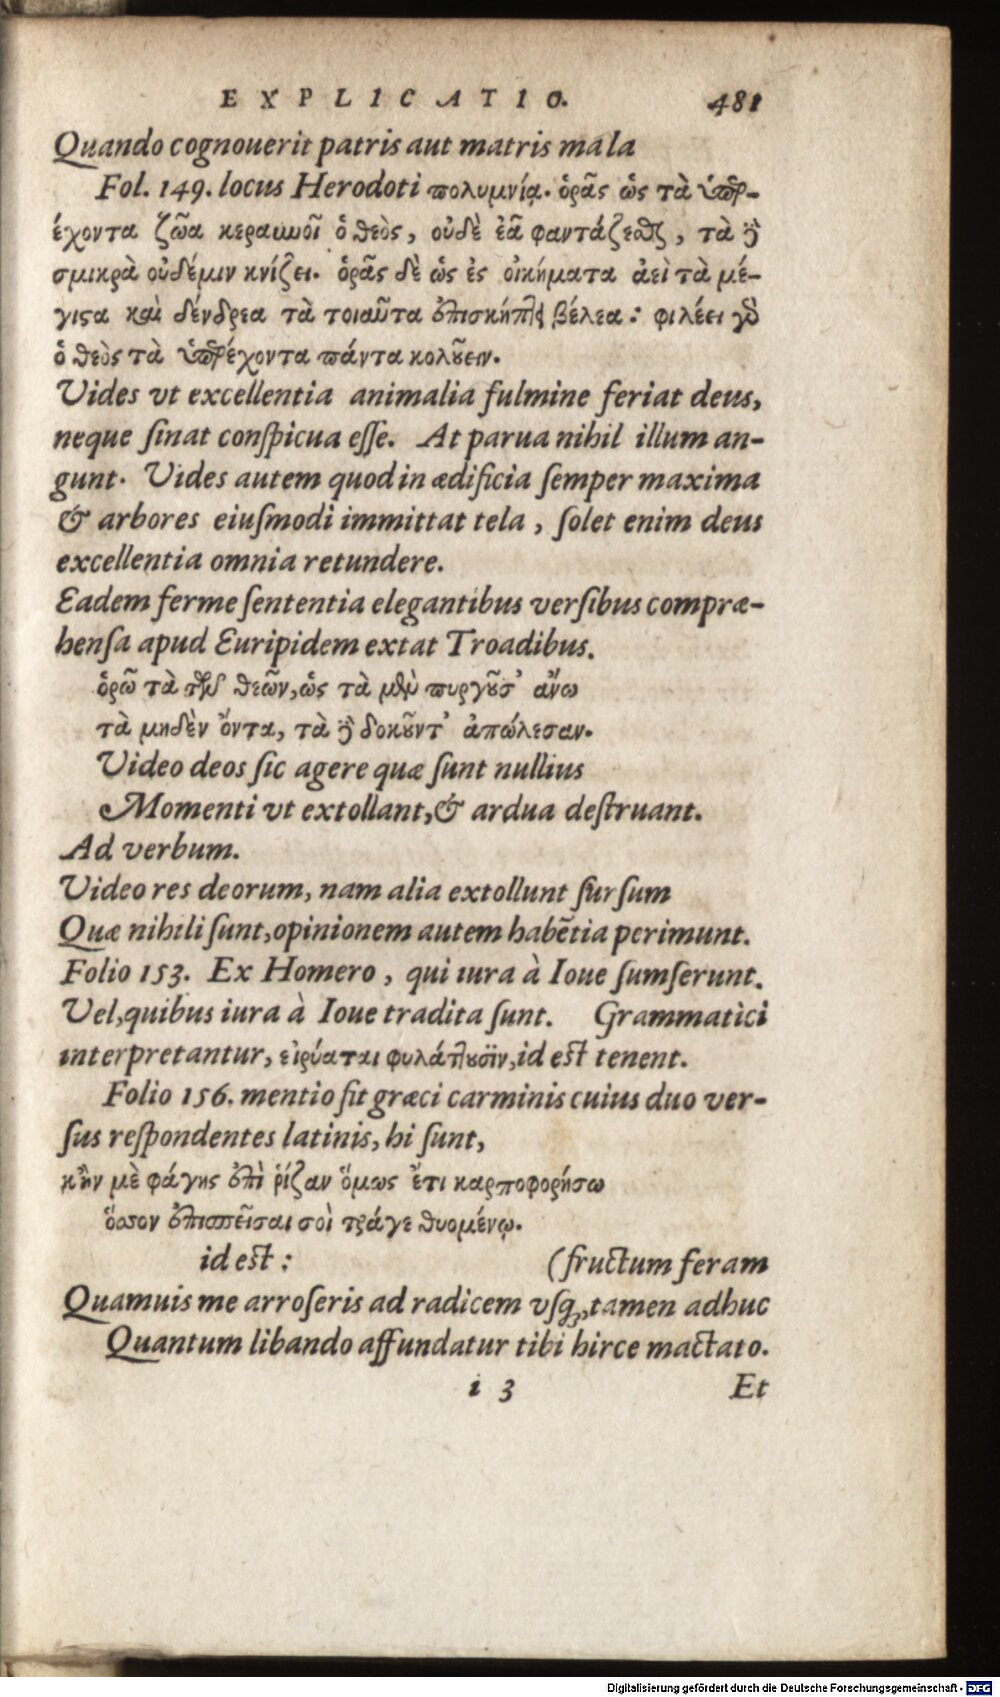 EXPLICATIO. 481
Quando cognouerit patris aut matris mala
Fol. 149. locus Herodoti πολυμνίᾳ. ὁρᾷς ὡς τὰ ὑπερ-
έχοντα ζῶα κεραυνοῖ ὁ θεὸς, οὐδὲ ἐᾷ φαντάζεσθαι, τὰ δὲ
σμικρὰ οὐδέμιν κνίζει. ὁρᾷς δὲ ὡς ἐς οἰκήματα ἀεὶ τὰ μέ-
γιϛα καὶ δένδρεα τὰ τοιαῦτα ἐπισκήπτει βέλεα: φιλέει γὰρ
ὁ θεὸς τὰ ὑπερέχοντα πάντα κολȣ́ειν.
Vides vt excellentia animalia fulmine feriat deus,
neque ſinat conſpicua eſſe. At parua nihil illum an-
gunt. Vides autem quod in ædificia ſemper maxima
& arbores eiuſmodi immittat tela, ſolet enim deus
excellentia omnia retundere.
Eadem ferme ſententia elegantibus verſibus compræ-
henſa apud Euripidem extat Troadibus.
ὁρῶ τὰ τῶν θεῶν, ὡς τὰ μὲν πυργȣ͂σ' ἄνω
τὰ μηδὲν ὄντα, τὰ δὲ δοκȣ͂ντ' ἀπώλεσαν.
Video deos ſic agere quæ ſunt nullius
Momenti vt extollant, & ardua deſtruant.
Ad verbum.
Video res deorum, nam alia extollunt ſurſum
Quæ nihili ſunt, opinionem autem habẽtia perimunt.
Folio 153. Ex Homero, qui iura à Ioue ſumſerunt.
Vel, quibus iura à Ioue tradita ſunt. Grammatici
interpretantur, εἰρύαται φυλάττȣσϊν, id eſt tenent.
Folio 156. mentio fit græci carminis cuius duo ver-
ſus reſpondentes latinis, hi ſunt,
κἢν μὲ φάγῃς ἐπὶ ῥίζαν ὅμως ἔτι καρποφορήσω
ὅσσον ἐπισπεῖσαι σοὶ τράγε θυομένῳ.
id eſt: (fructum feram
Quamuis me arroſeris ad radicem vſq́;, tamen adhuc
Quantum libando affundatur tibi hirce mactato.
i 3 Et
Digitalisierung gefördert durch die Deutsche Forschungsgemeinschaft - DFG